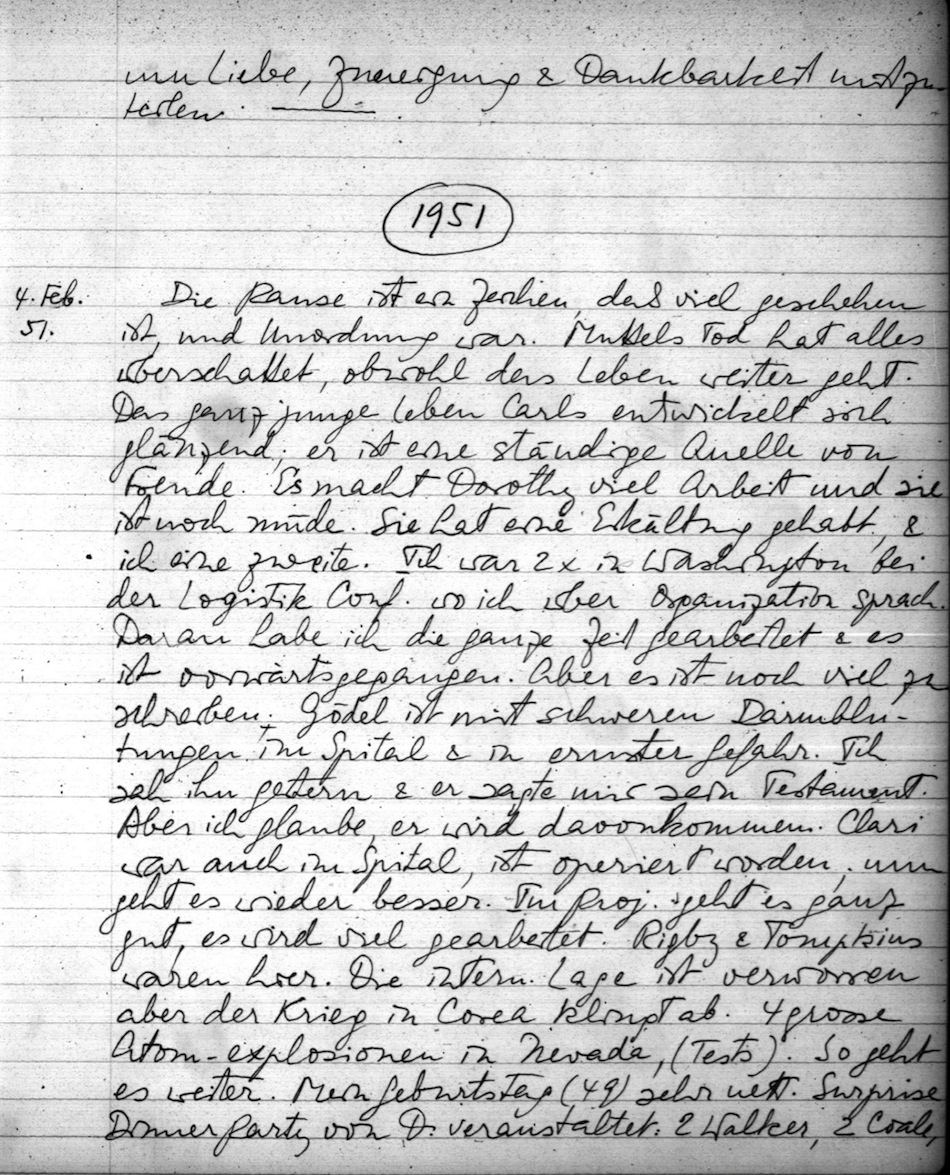 um Liebe, Zuneigung & Dankbarkeit mitzu-
teilen.
1951
4. Feb. Die Pause ist ein Zeichen, daß viel geschehen
51. ist, und Unordnung war. Muttels Tod hat alles
überschattet, obwohl das Leben weiter geht.
Das ganz junge Leben Carls entwickelt sich
glänzend; er ist eine ständige Quelle von
Freude. Es macht Dorothy viel Arbeit und sie
ist noch müde. Sie hat eine Erkältung gehabt, &
ich eine zweite. Ich war 2x in Washington bei
der Logistik Conf. wo ich über Organization sprach.
Daran habe ich die ganze Zeit gearbeitet & es
ist vorwärtsgegangen. Aber es ist noch viel zu
schreiben. Gödel ist mit schweren Darmblu-
tungen im Spital & in ernster Gefahr. Ich
sah ihn gestern & er sagte mir sein Testament.
Aber ich glaube, er wird davonkommen. Clari
war auch im Spital, ist operiert worden, nun
geht es wieder besser. Im Proj. geht es ganz
gut, es wird viel gearbeitet. Rigby & Tompkins
waren hier. Die intern. Lage ist verworren
aber der Krieg in Corea klingt ab. 4 grosse
Atom-explosionen in Nevada, (Tests). So geht
es weiter. Mein Geburtstag (49) sehr nett. Surprise
Dinner Party von D. veranstaltet: 2 Walker, 2 Coale,